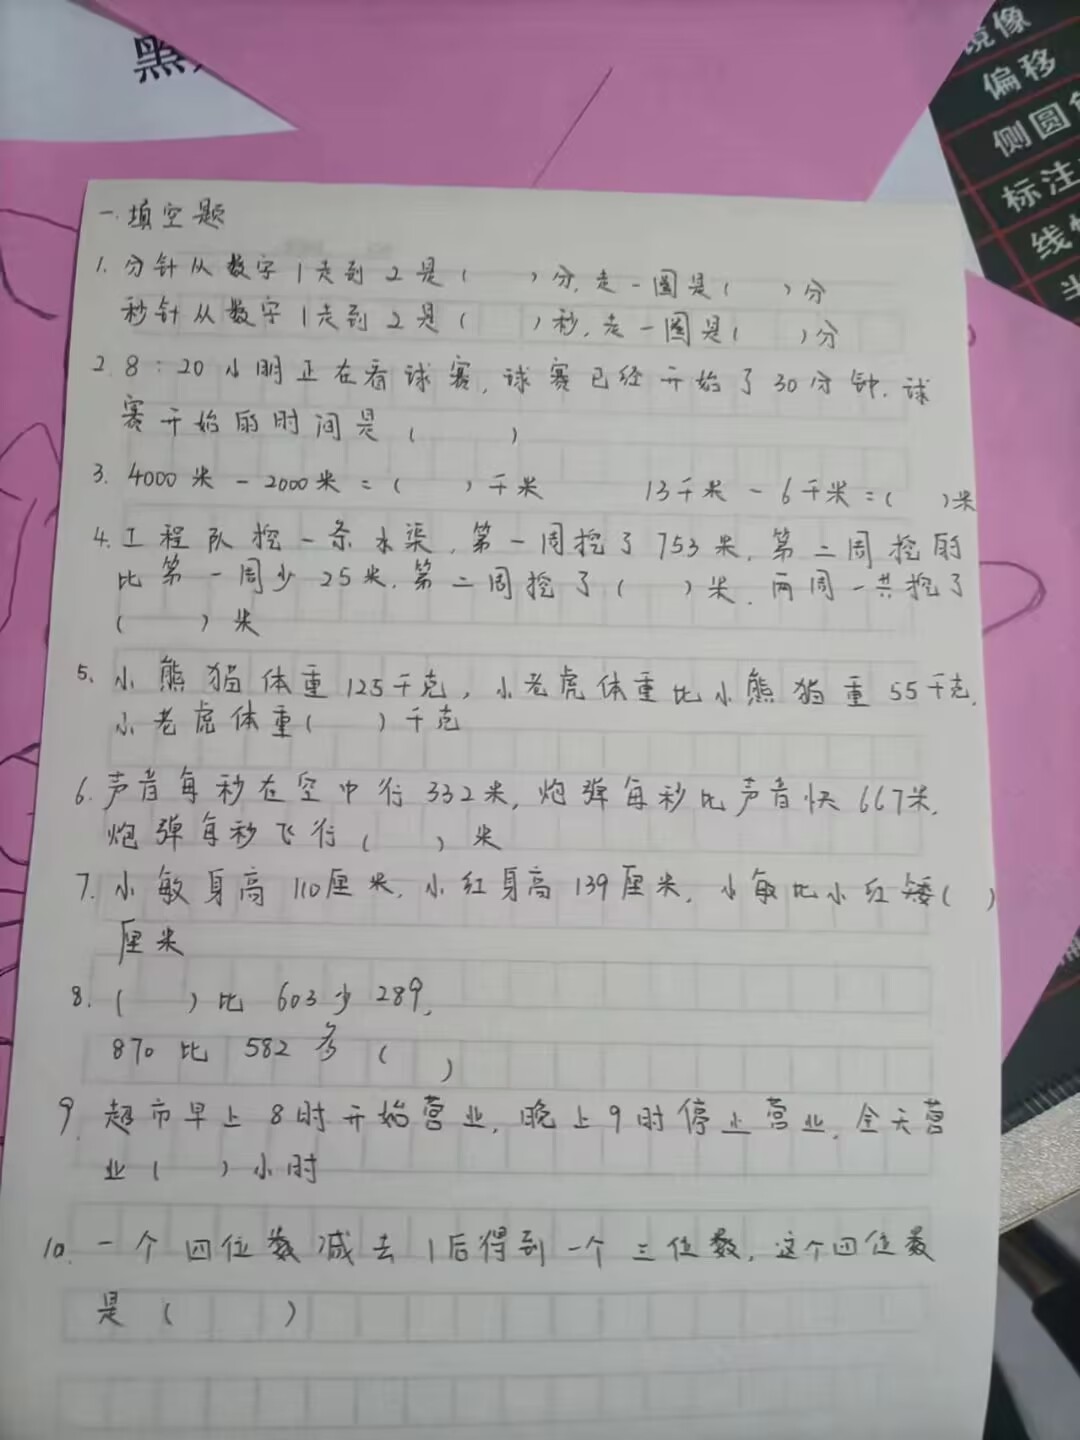 黑
镜像
偏移
侧圆角
标注
一.填空题
1. 分针从数字1走到2是（ ）分,走一圈是（ ）分
秒针从数字1走到2是（ ）秒,走一圈是（ ）分
2. 8:20小明正在看球赛,球赛已经开始了30分钟.球
赛开始的时间是（ ）
3. 4000米-2000米=（ ）千米 13千米-6千米=（ ）米
4. 工程队挖一条水渠,第一周挖了753米,第二周挖的
比第一周少25米.第二周挖了（ ）米.两周一共挖了
（ ）米
5、小熊猫体重125千克,小老虎体重比小熊猫重55千克,
小老虎体重（ ）千克
6. 声音每秒在空中行332米,炮弹每秒比声音快667米,
炮弹每秒飞行（ ）米
7. 小敏身高110厘米.小红身高139厘米,小敏比小红矮（ ）
厘米
8. （ ）比603少289,
870比582多（ ）
9. 超市早上8时开始营业,晚上9时停止营业.全天营
业（ ）小时
10. 一个四位数减去1后得到一个三位数,这个四位数
是（ ）